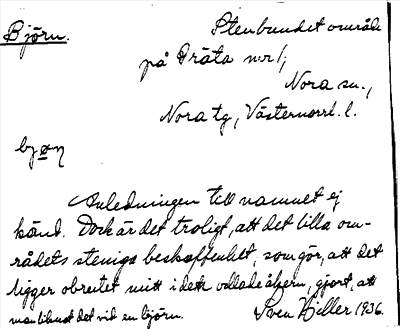 Björn.
Stenbundet område
på Präta nr 1,
Nora sn.,
Nora tg, Västernorrl. l.
bjøη
Anledningen till namnet ej
känd. Dock är det troligt, att det lilla om-
rådets steniga beskaffenhet, som gör, att det
ligger obrutet mitt i detta odlade åkern, gjort, att
man liknat det vid en björn. Sven Hiller 1936.